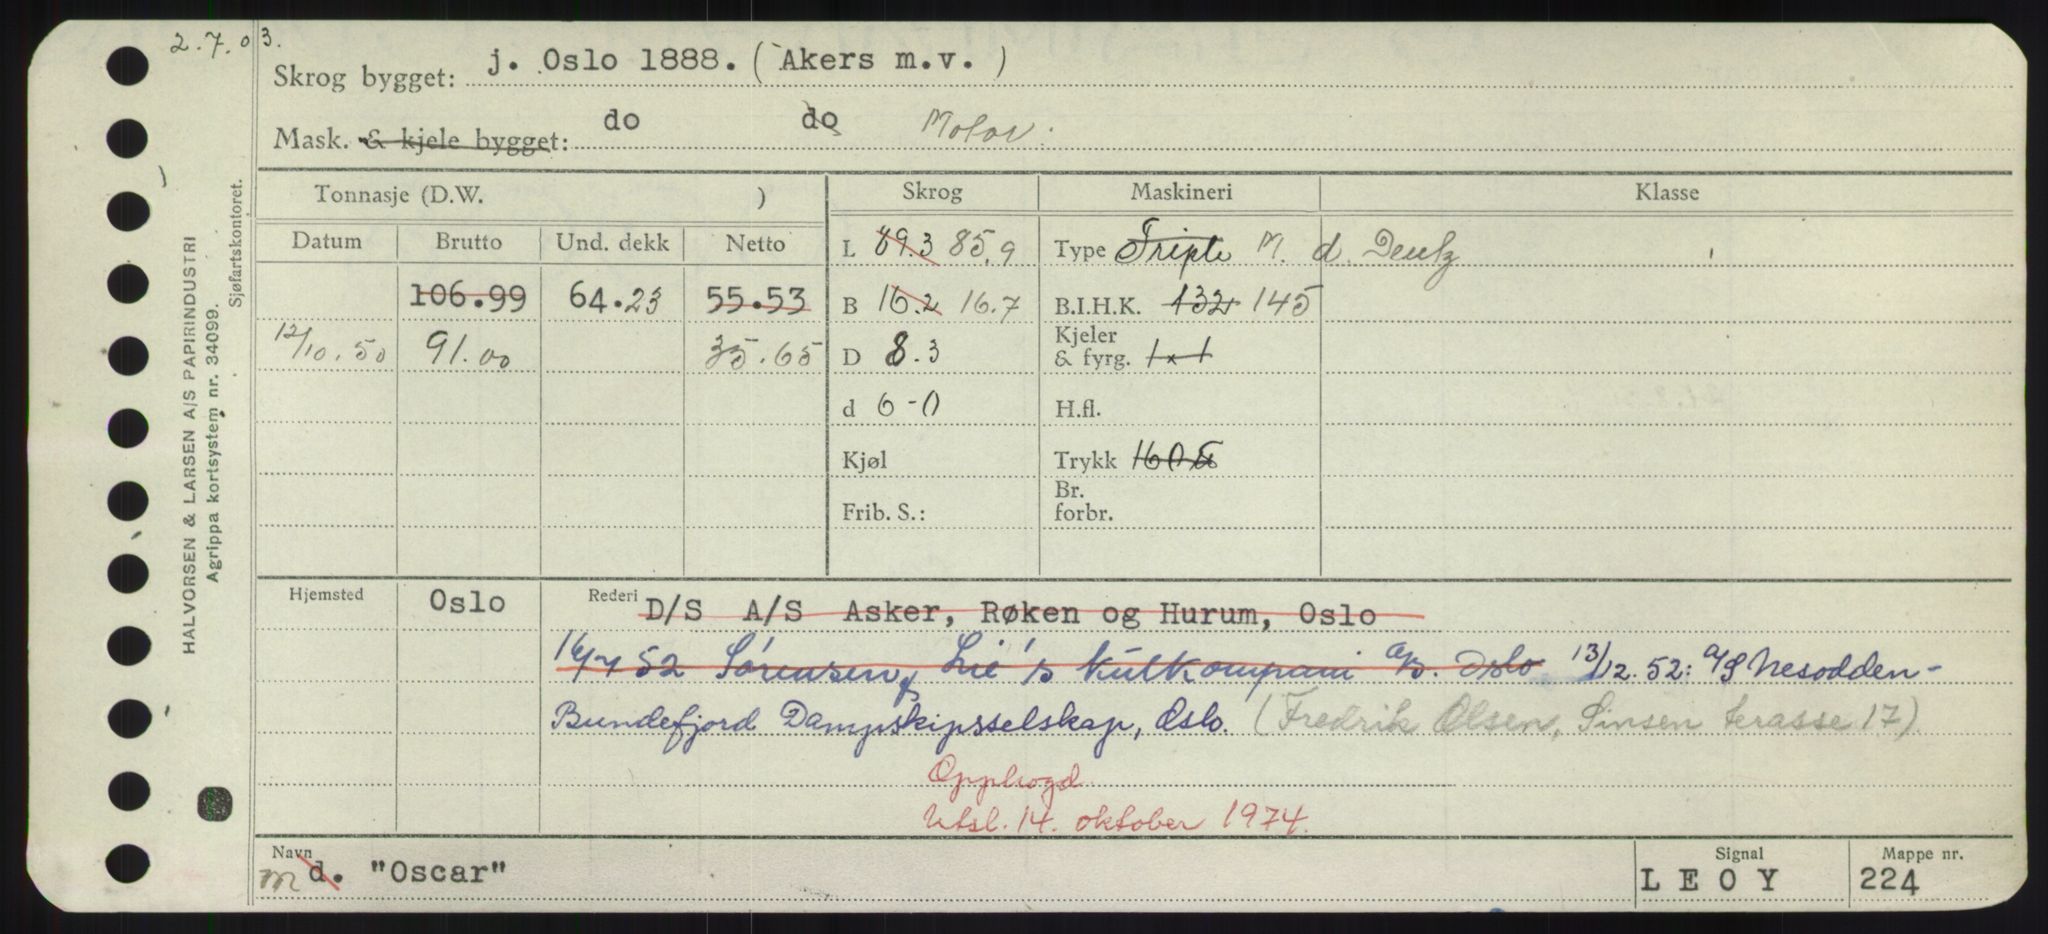 2.7.03.
Skrog bygget: j. Oslo 1888. (Akers m.v. )
Mask. & kjele bygget: do do Motor.
Tonnasje (D.W. ) Skrog Maskineri Klasse
Datum Brutto Und. dekk Netto L 89.3 85,9 Type Triple M. d. Deutz
106.99 64.23 55.53 B 16.2 16.7 B.I.H.K. 132 145
12/10.50 91.00 35.65 D 8.3 Kjeler & fyrg. 1 x 1
d 6-0 H.fl.
Kjøl Trykk 160
Frib. S.: Br. forbr.
Hjemsted Oslo Rederi D/S A/S Asker, Røken og Hurum, Oslo
52 Sørensen & Lie's Kullkompani A/S. Oslo 13/12.52: A/S Nesodden-
Bundefjord Dampskipsselskap, Oslo. (Fredrik Olsen, Sinsen terasse 17)
Opphogd
Utsl. 14. oktober 1974.
Navn Signal Mappe nr.
m d. "Oscar" LEOY 224
HALVORSEN & LARSEN A/S PAPIRINDUSTRI
Agrippa kortsystem nr. 34099.
Sjøfartskontoret.